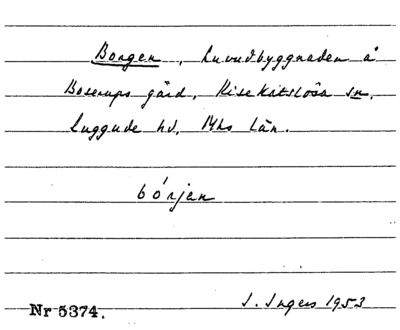 Borgen, huvudbyggnaden å
Boserups gård, Risekatslösa sn.
Luggude hd, Mhs län.
bórjan
Nr 5374.
I. Ingers 1953